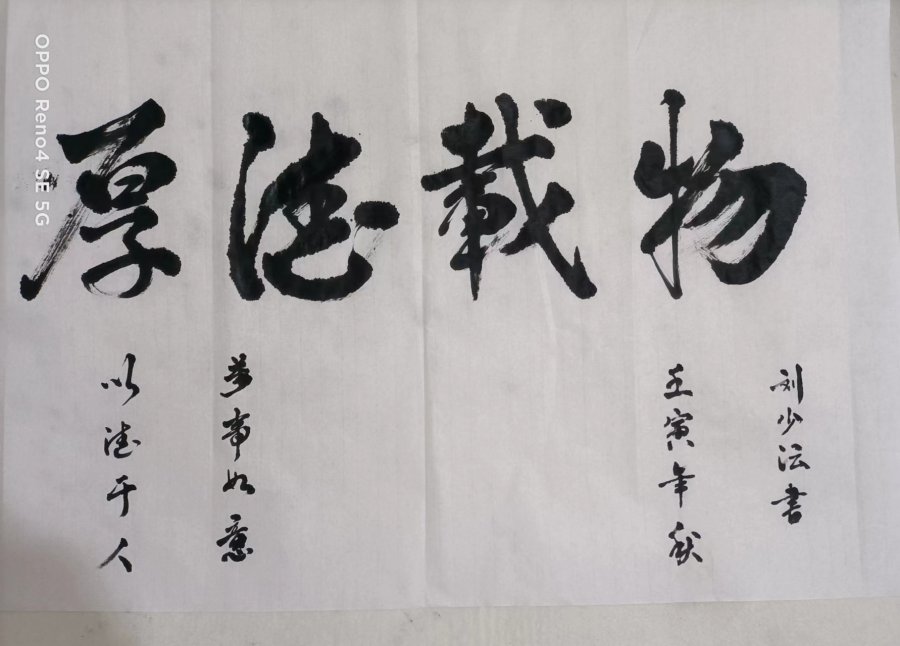 厚德載物
以德于人
萬事如意
壬寅年秋
刘少沄書
OPPO Reno4 SE 5G